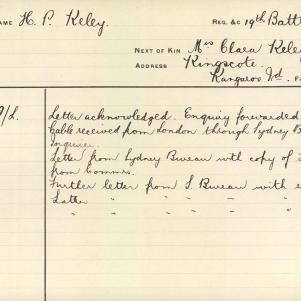 NAME H. P. Keley REG. &C 19th Batt
NEXT OF KIN Mrs Clara Keley
ADDRESS Kingscote.
Kangaroo Id.
/L. Letter acknowledged. Enquiry forwarded
Cable received from London through Sydney
Inquirer.
Letter from Sydney Bureau with copy of
from Commrs.
Further letter from S. Bureau with
Later " " " "
" " " "